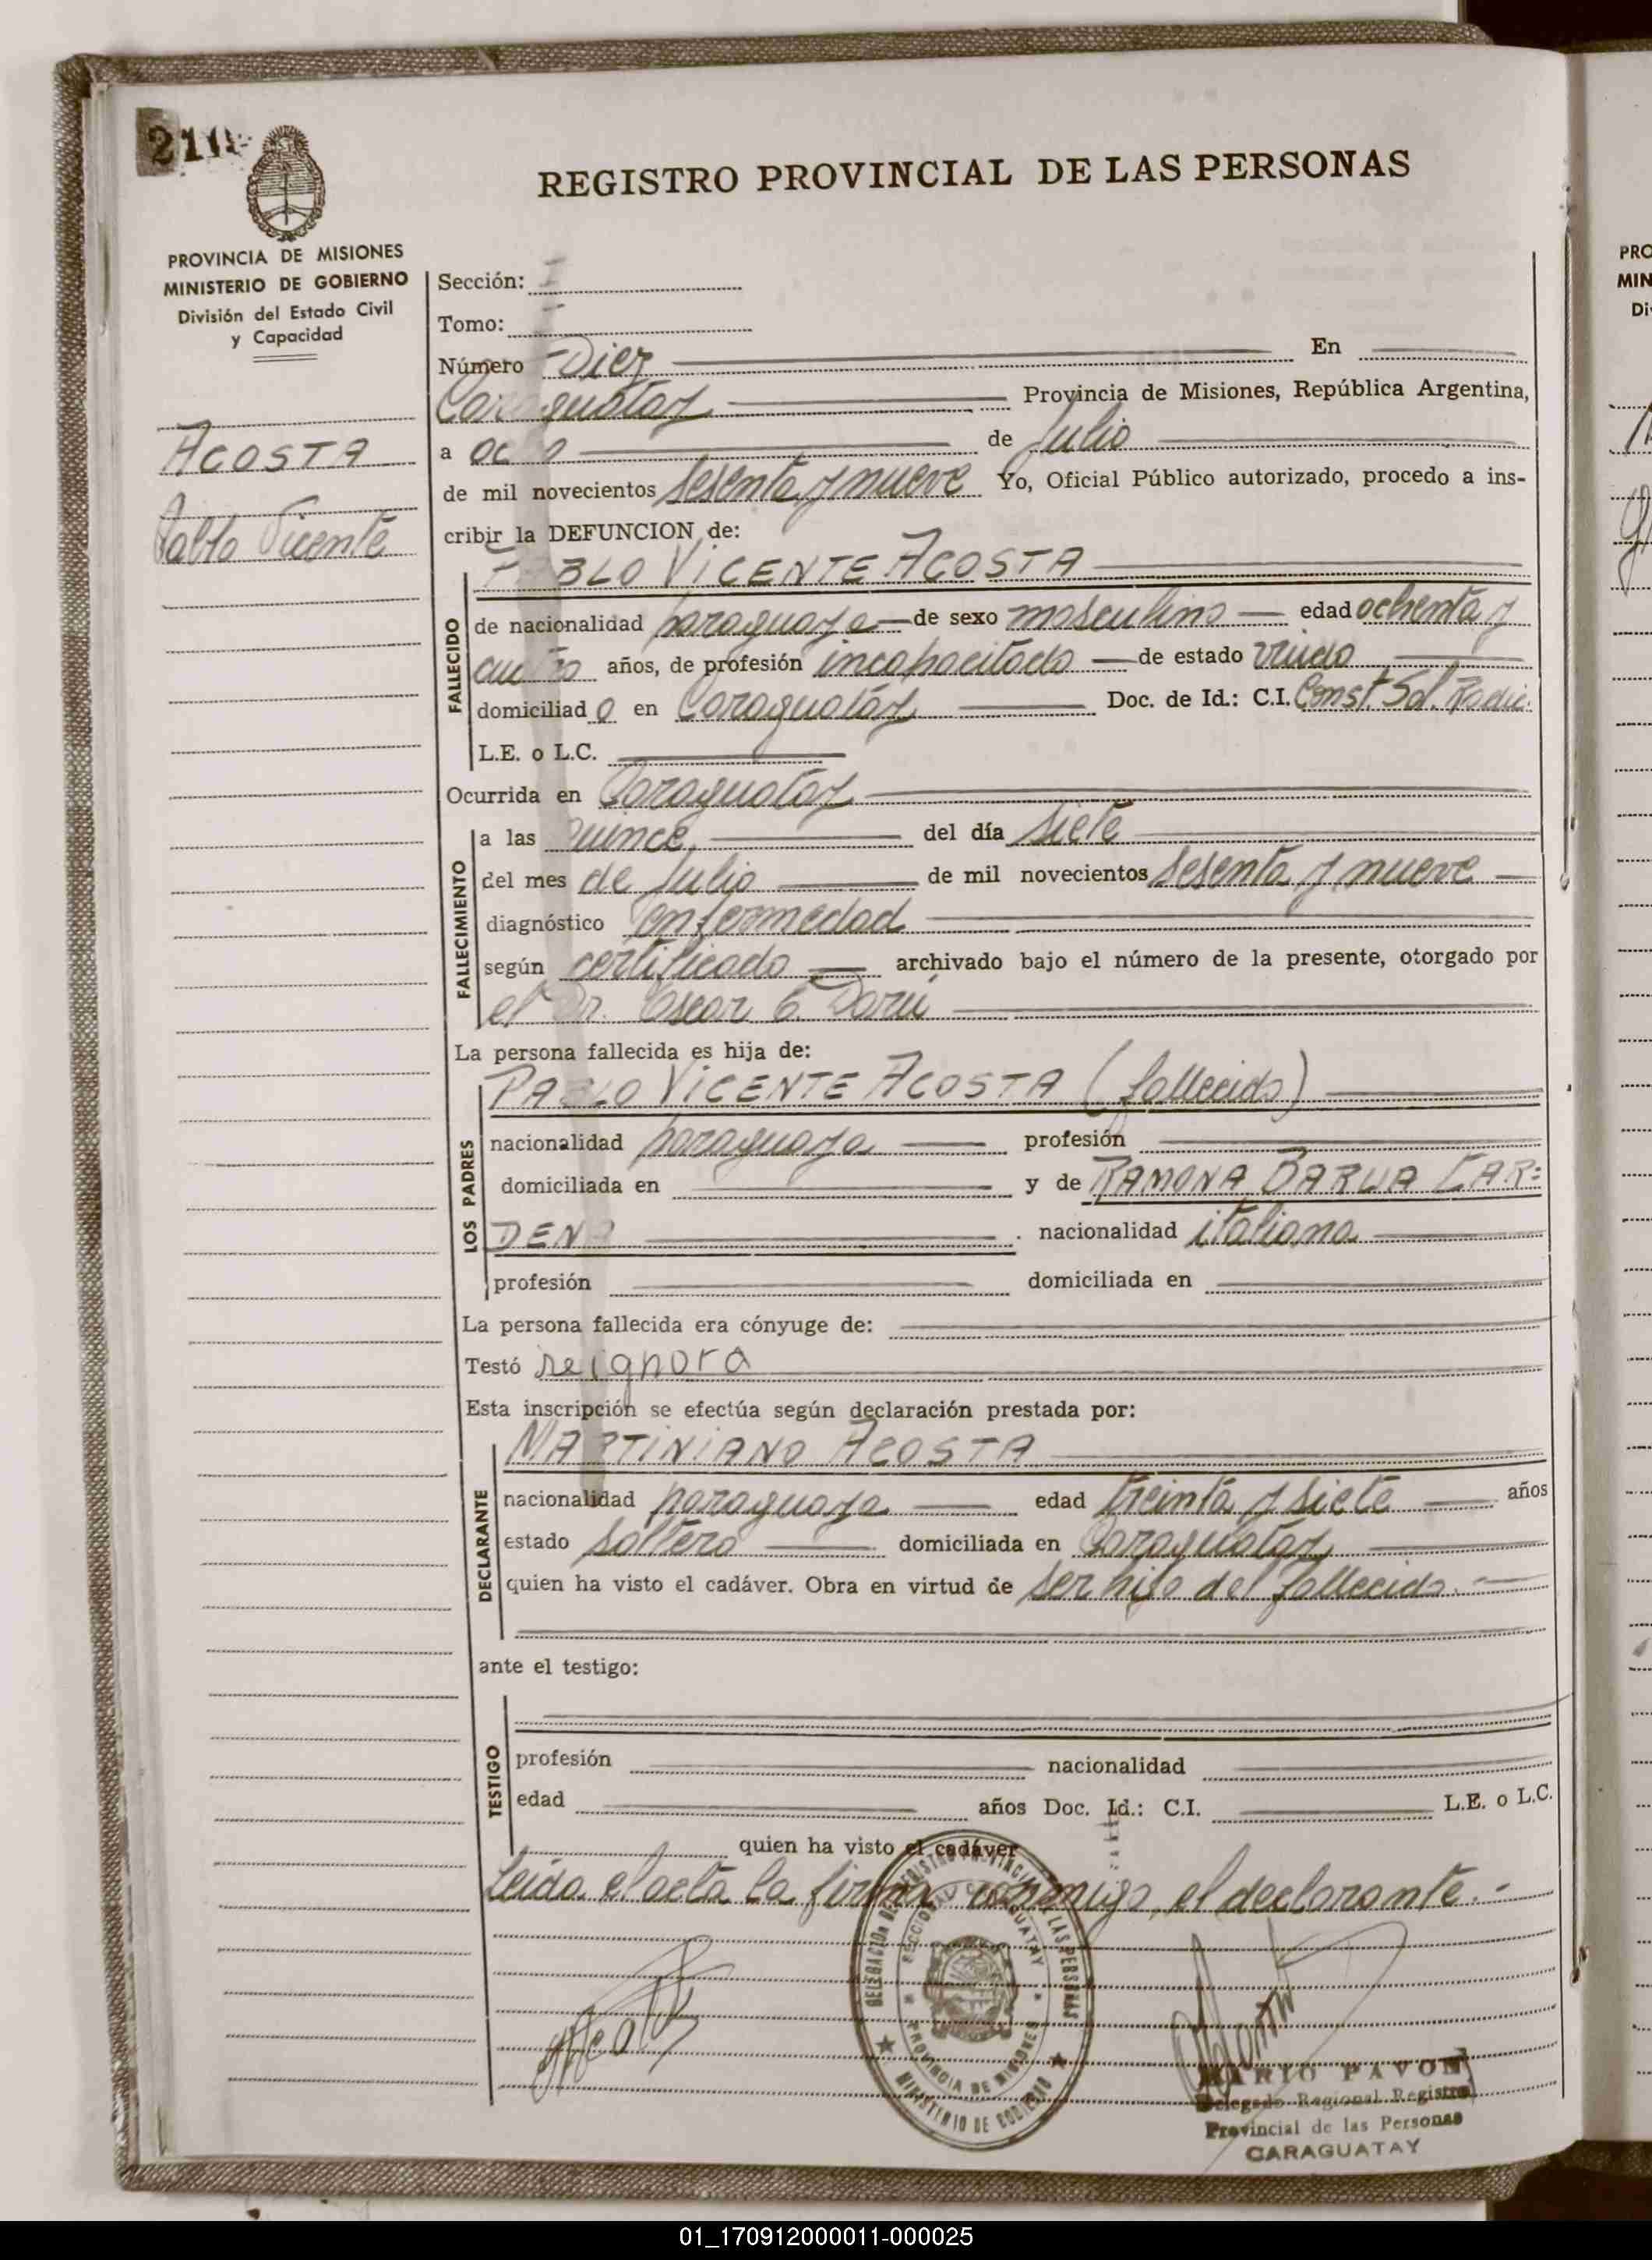 REGISTRO PROVINCIAL DE LAS PERSONAS
PROVINCIA DE MISIONES
MINISTERIO DE GOBIERNO
División del Estado Civil
y Capacidad
ACOSTA
Pablo Vicente
Sección: I
Tomo: I
Número Diez En
Caraguatay Provincia de Misiones, República Argentina,
a ocho de Julio
de mil novecientos sesenta y nueve Yo, Oficial Público autorizado, procedo a ins-
cribir la DEFUNCION de:
PABLO VICENTE ACOSTA
FALLECIDO
de nacionalidad paraguaya de sexo masculino edad ochenta y
cuatro años, de profesión incapacitado de estado viudo
domiciliado en Caraguatay Doc. de Id.: C.I. Const. Sol. Radic.
L.E. o L.C.
Ocurrida en Caraguatay
FALLECIMIENTO
a las quince del día siete
del mes de Julio de mil novecientos sesenta y nueve
diagnóstico enfermedad
según certificado archivado bajo el número de la presente, otorgado por
el Dr. Oscar G. Darú
La persona fallecida es hija de:
PABLO VICENTE ACOSTA (fallecido)
LOS PADRES
nacionalidad paraguaya profesión
domiciliada en y de RAMONA BARUA CAR=
DENA nacionalidad italiana
profesión domiciliada en
La persona fallecida era cónyuge de:
Testó se ignora
Esta inscripción se efectúa según declaración prestada por:
MARTINIANO ACOSTA
DECLARANTE
nacionalidad paraguaya edad treinta y siete años
estado soltero domiciliada en Caraguatay
quien ha visto el cadáver. Obra en virtud de ser hijo del fallecido.-
ante el testigo:
TESTIGO
profesión nacionalidad
edad años Doc. Id.: C.I. L.E. o L.C.
quien ha visto el cadáver
Leída el acta la firma conmigo, el declarante.-
DELEGACION DEL REGISTRO PROVINCIAL DE LAS PERSONAS
SECCIONAL CARAGUATAY
PROVINCIA DE MISIONES
MINISTERIO DE GOBIERNO
MARIO PAVON
Delegado Regional Registro
Provincial de las Personas
CARAGUATAY
PRO
MIN
Di
01_170912000011-000025